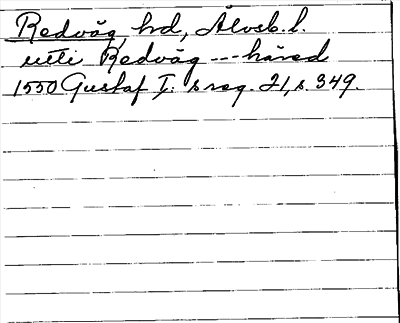 Redväg hd, Älvsb. l.
uti Redvåg --- härad
1550 Gustaf I:s reg. 21, s. 349.